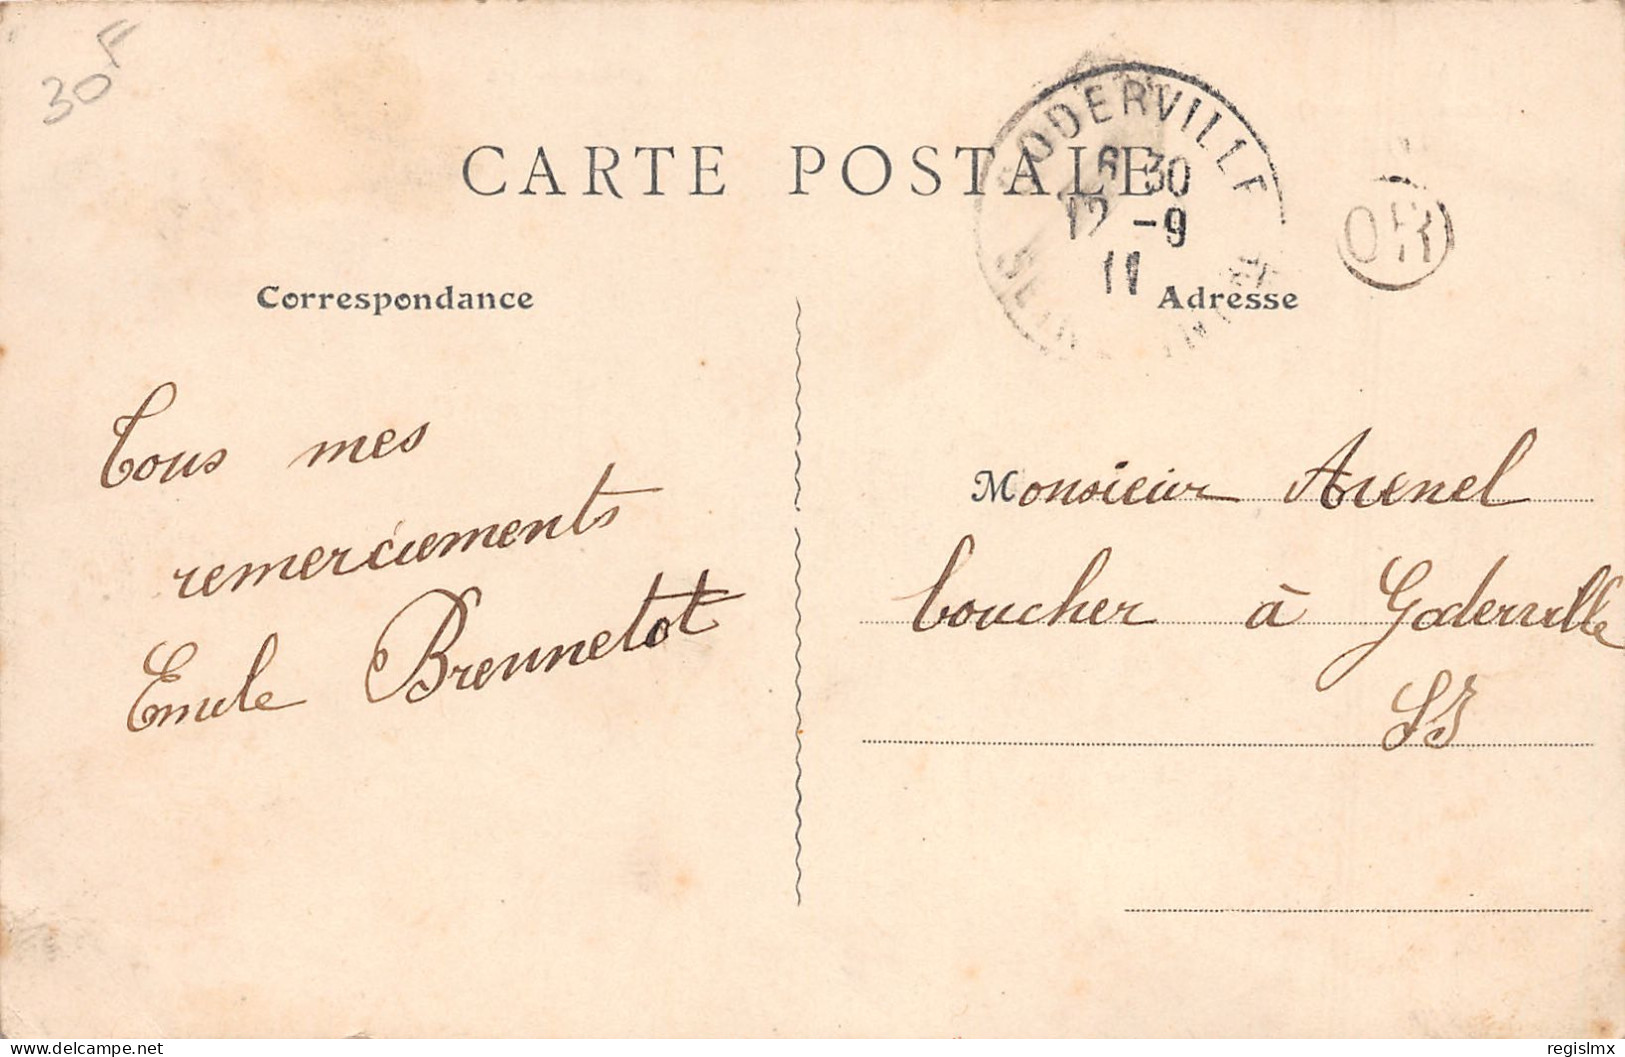 30F
CARTE POSTALE
ODERVILLE
6 30
12 -9
11
OR
Correspondance
Adresse
Tous mes
remerciements
Emile Brennetot
Monsieur Avenel
boucher à Goderville
SI
delcampe.net
regislmx